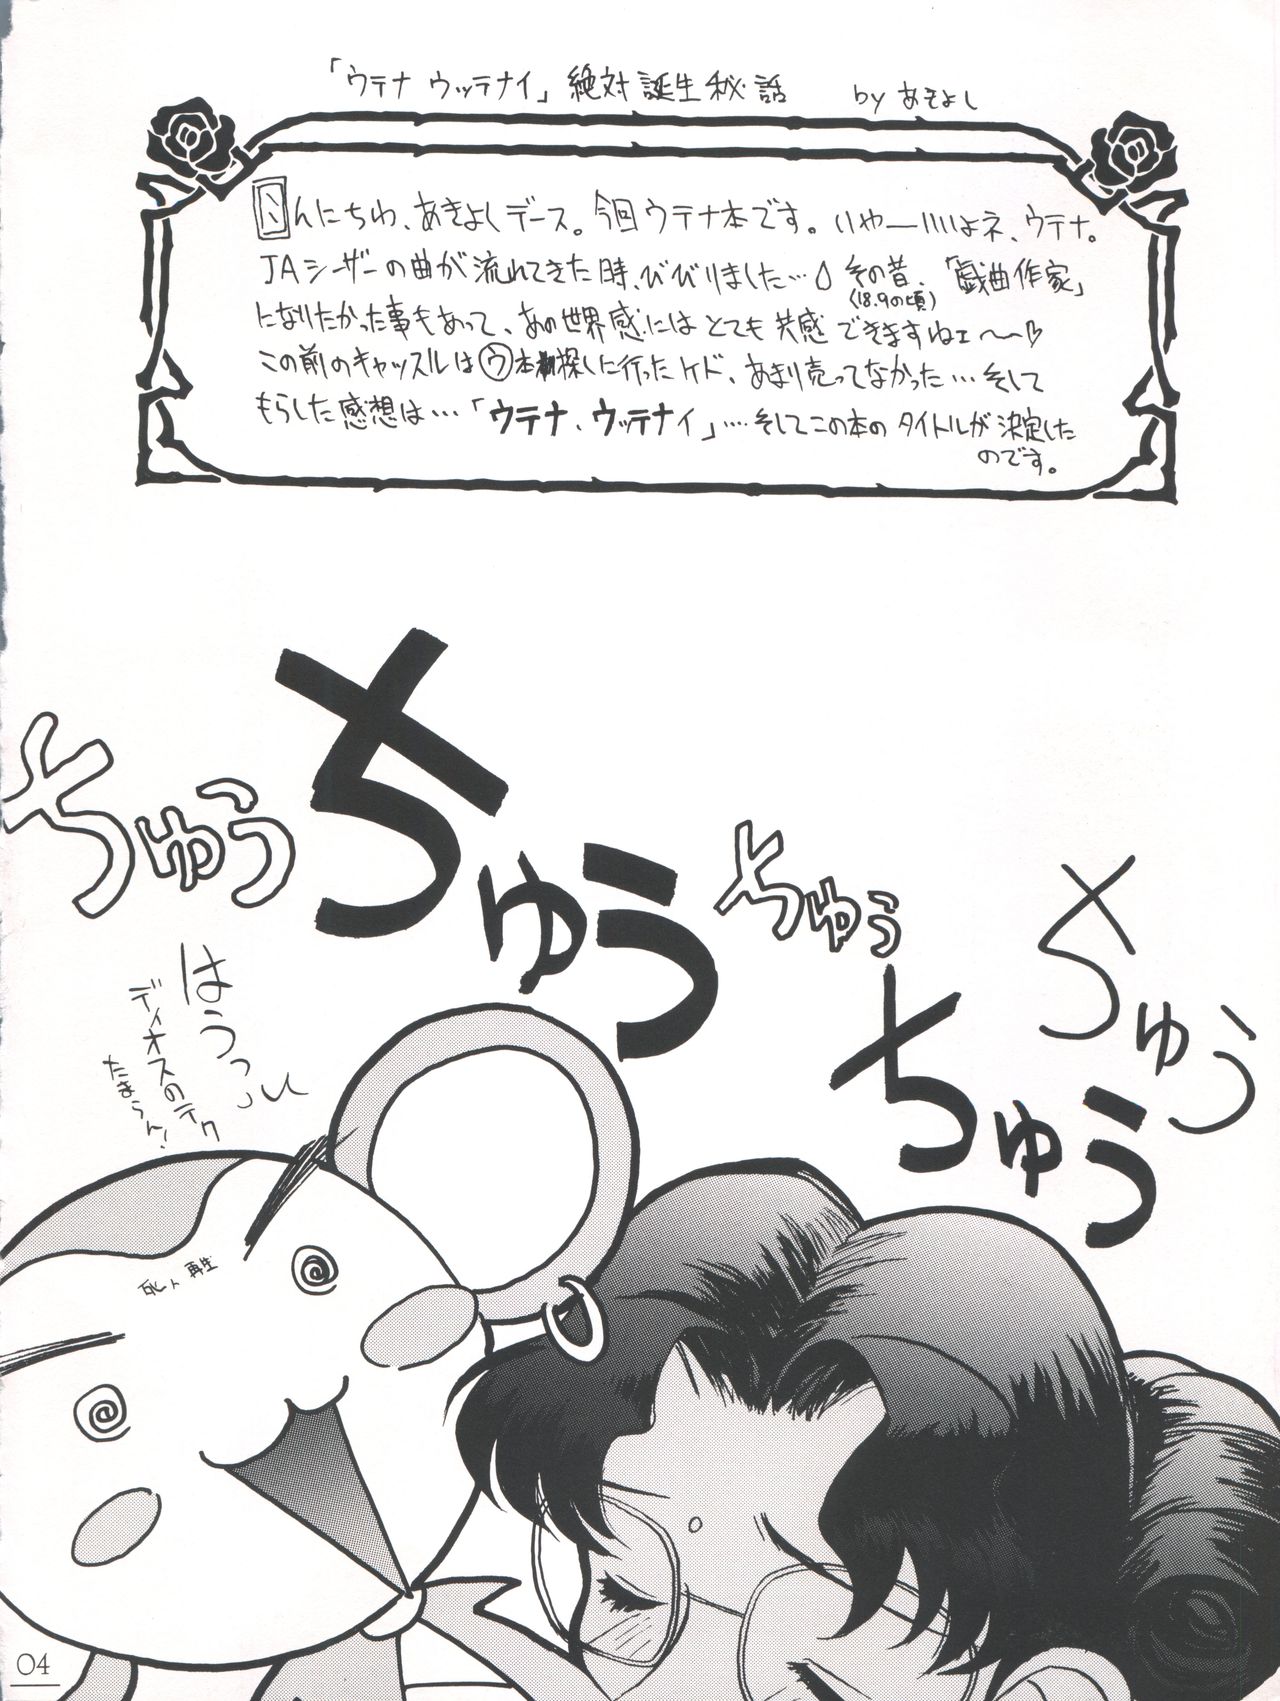 「ウテナ ウッテナイ」絶対誕生秘話 by あきよし
こんにちわ、あきよしデース。今回ウテナ本です。いやーいいよネ、ウテナ。
JAシーザーの曲が流れてきた時、びびりました… その昔、「戯曲作家」
(18.9の頃)
になりたかった事もあって、あの世界感にはとても共感できますねェ〜♡
この前のキャッスルはウ本探しに行ったケド、あまり売ってなかった…そして
もらした感想は…「ウテナ、ウッテナイ」…そしてこの本のタイトルが決定した
のです。
ちゅう
ちゅう
ちゅう
ちゅう
ちゅう
はうっ
ディオスのテク
たまらん!
再生
04